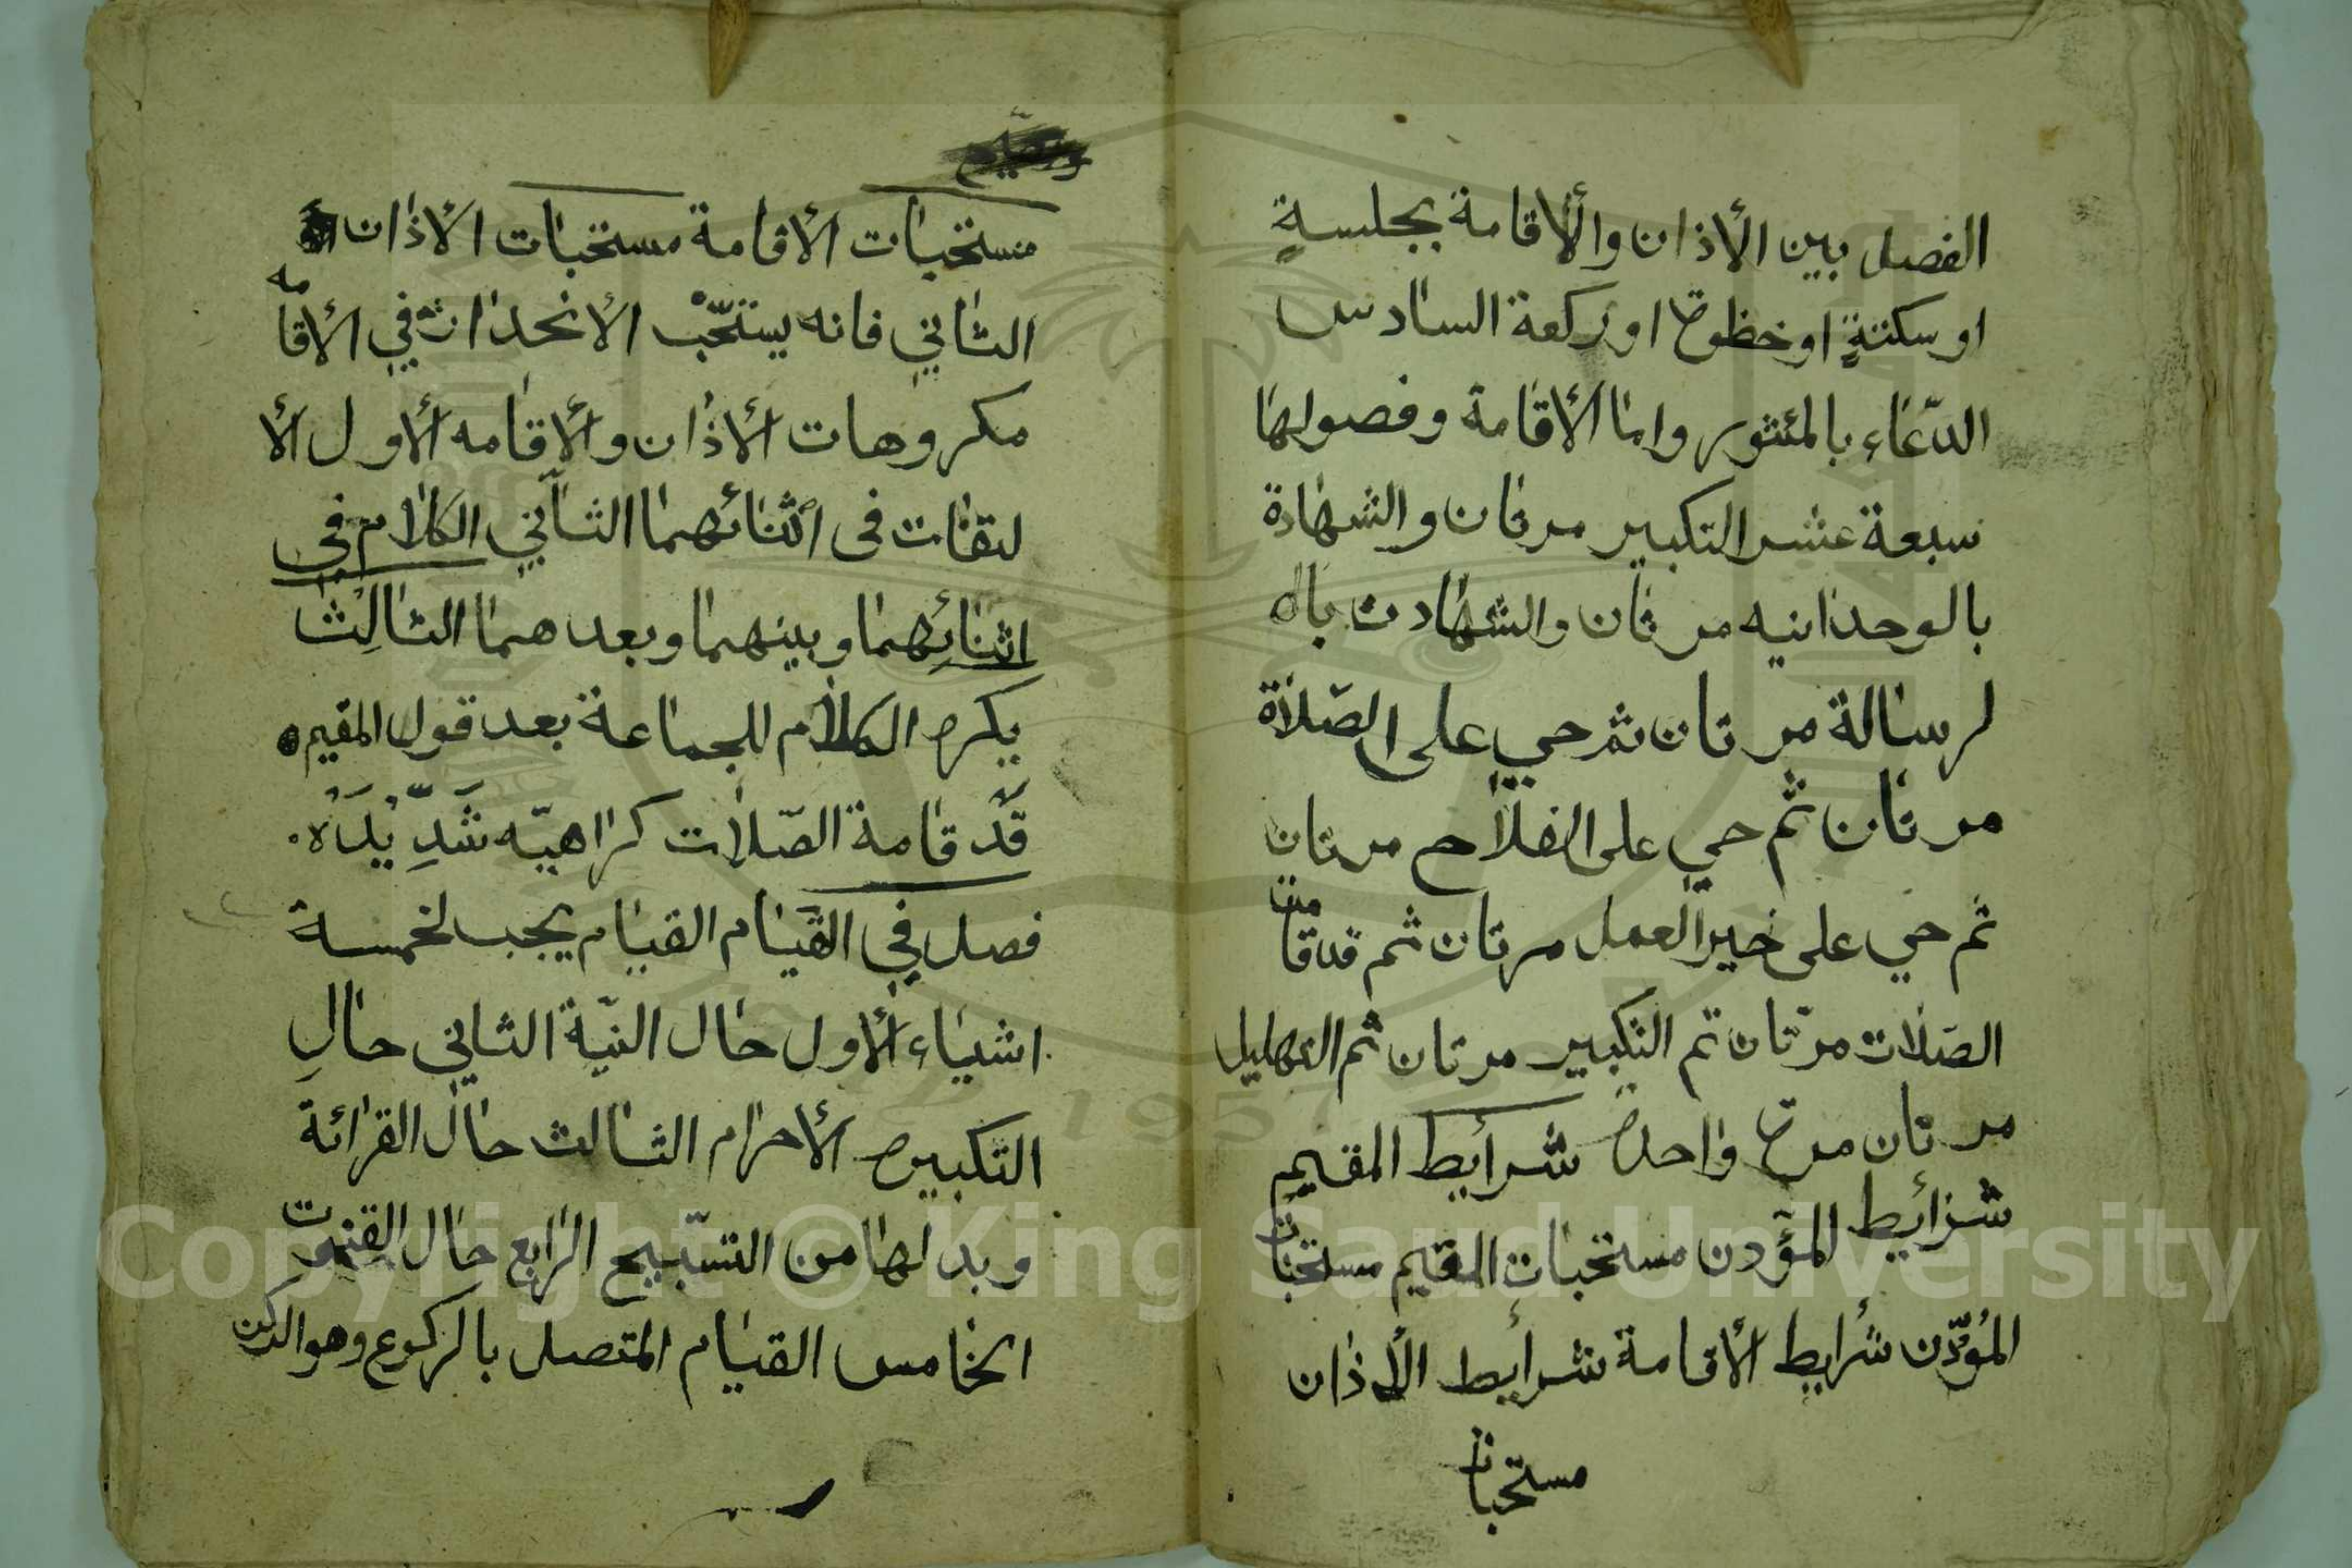 الفصل بين الأذان والأقامة بجلسةٍ
او سكتةٍ اوخظوة اوركعة السادس
الدّعاء بالمئثور واما الأقامة وفصولها
سبعة عشر التكبير مرتان والشهادة
بالوحدانيه مرتان والشهادت باا
لرسالة مرتان ثم حي على الصّلاة
مرتان ثم حي على الفلاح مرتان
ثم حي على خير العمل مرتان ثم قدقامت
الصّلات مرتان ثم التكبير مرتان ثم التهليل
مرتان مرة واحدة شرأيط المقيم
شرأيط المؤدن مستحبات المقيم مستحبات
المؤدّن شرأيط الأقامة شرأيط الأذان
مستحبات
مستحبات الأقامة مستحبات الأذان
الثاني فانه يستحّب الأنحدار في الأقامه
مكروهات الأذان والأقامه الأول الأ
لتقات في اثنائهما الثاني الكلام في
اثنائِهما وبينهما وبعدهما الثالِث
يكره الكلام للجماعة بعد قول المقيم
قَد قامة الصّلات كراهيّه شَدِيْدَهْ
فصل في القيام القيام يجب لخمسة
اشياء الأول حال النيّة الثاني حالِ
التكبيرة الأحرام الثالث حال القرائة
وبدلها من التسّبيح الرابع حال القنوت
الخامس القيام المتصل بالركوع وهوالركن
Copyright © King Saud University
1957